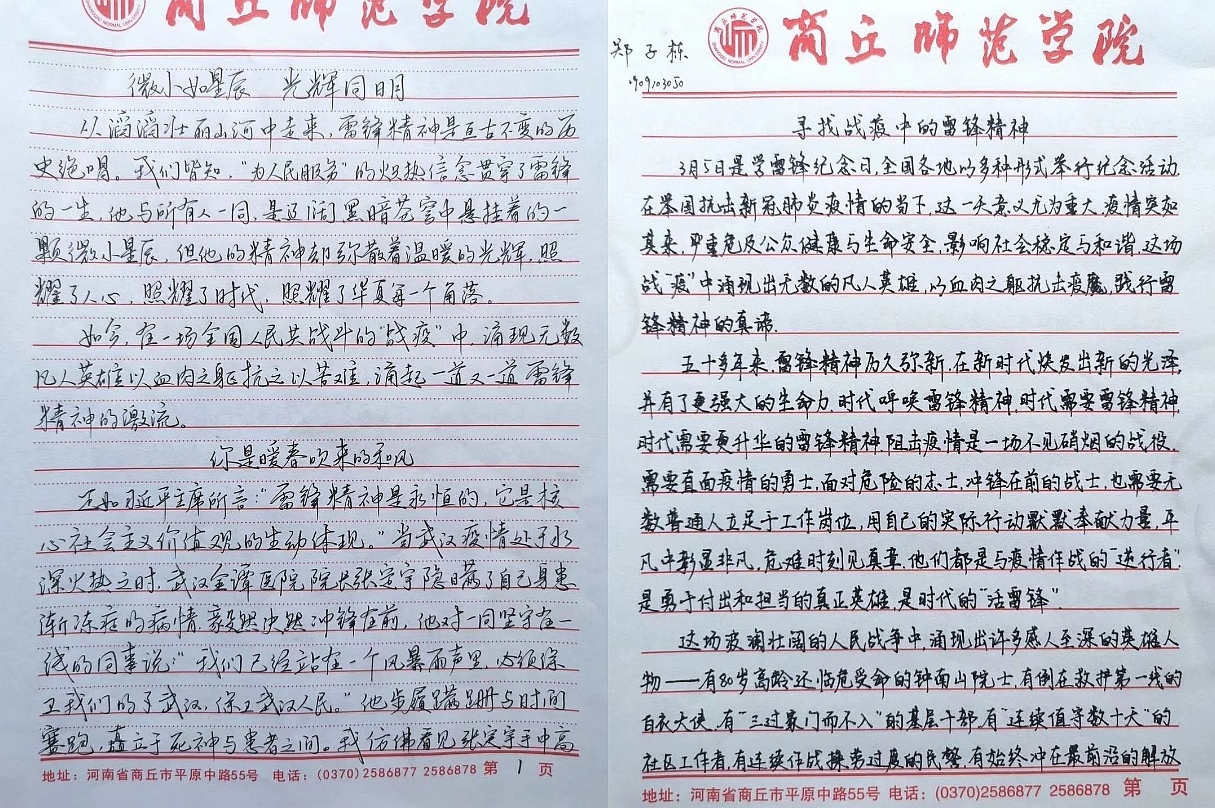 商丘师范学院
微小如星辰 光辉同日月
从滔滔壮丽山河中走来，雷锋精神是亘古不变的历
史绝唱。我们皆知，"为人民服务"的炽热信念贯穿了雷锋
的一生，他与所有人一同，是辽阔黑暗苍穹中悬挂着的一
颗微小星辰，但他的精神却弥散着温暖的光辉，照
耀了人心，照耀了时代，照耀了华夏每一个角落。
如今，在一场全国人民共战斗的"战疫"中，涌现无数
凡人英雄以血肉之躯抗之以苦难，涌起一道又一道雷锋
精神的激流。
你是暖春吹来的和风
正如习近平主席所言："雷锋精神是永恒的，它是核
心社会主义价值观的生动体现。"当武汉疫情处于水
深火热之时，武汉金潭医院院长张定宇隐瞒了自己身患
渐冻症的病情，毅然决然冲锋在前，他对一同坚守在一
线的同事说："我们已经站在一个风暴雨声里，必须保
卫我们的了武汉，保卫武汉人民。"他步履蹒跚与时间
赛跑，矗立于死神与患者之间。我仿佛看见张定宇手中高
地址：河南省商丘市平原中路55号 电话：(0370)2586877 2586878 第 1 页
商丘师范学院
郑子栋
寻找战疫中的雷锋精神
3月5日是学雷锋纪念日，全国各地以多种形式举行纪念活动.
在举国抗击新冠肺炎疫情的当下，这一天意义尤为重大.疫情突如
其来，严重危及公众健康与生命安全，影响社会稳定与和谐.这场
战"疫"中涌现出无数的凡人英雄，以血肉之躯抗击疫魔，践行雷
锋精神的真谛.
五十多年来，雷锋精神历久弥新，在新时代焕发出新的光泽，
并有了更强大的生命力.时代呼唤雷锋精神，时代需要雷锋精神，
时代需要更升华的雷锋精神.阻击疫情是一场不见硝烟的战役，
需要直面疫情的勇士，面对危险的志士，冲锋在前的战士，也需要无
数普通人立足于工作岗位，用自己的实际行动默默奉献力量，平
凡中彰显非凡，危难时刻见真章.他们都是与疫情作战的"逆行者"，
是勇于付出和担当的真正英雄，是时代的"活雷锋".
这场波澜壮阔的人民战争中，涌现出许多感人至深的英雄人
物——有80岁高龄还临危受命的钟南山院士，有倒在救护第一线的
白衣天使，有"三过家门而不入"的基层干部，有"连续值守数十天"的
社区工作者，有连续作战操劳过度的民警，有始终冲在最前沿的解放
地址：河南省商丘市平原中路55号 电话：(0370)2586877 2586878 第 页